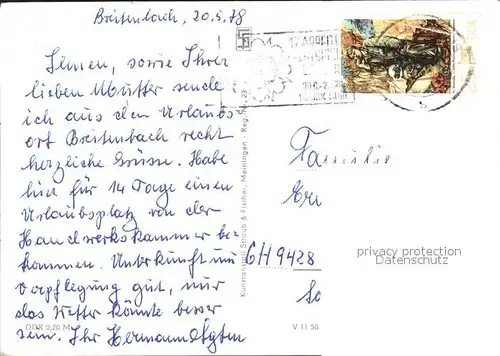 Breitenbach, 20.5.78
Ihnen, sowie Ihrer
lieben Mutter sende
ich aus dem Urlaubs-
ort Breitenbach recht
herzliche Grüsse. Habe
hier für 14 Tage einen
Urlaubsplatz von der
Handwerkskammer be-
kommen. Unterkunft und
Verpflegung gut, nur
das Wetter könnte besser
sein. Ihr Hermann
DDR 0,20 M
Kunstanstalt Straub & Fischer, Meiningen - Reg.
V 11 50
Familie
GH9428
privacy protection
Datenschutz